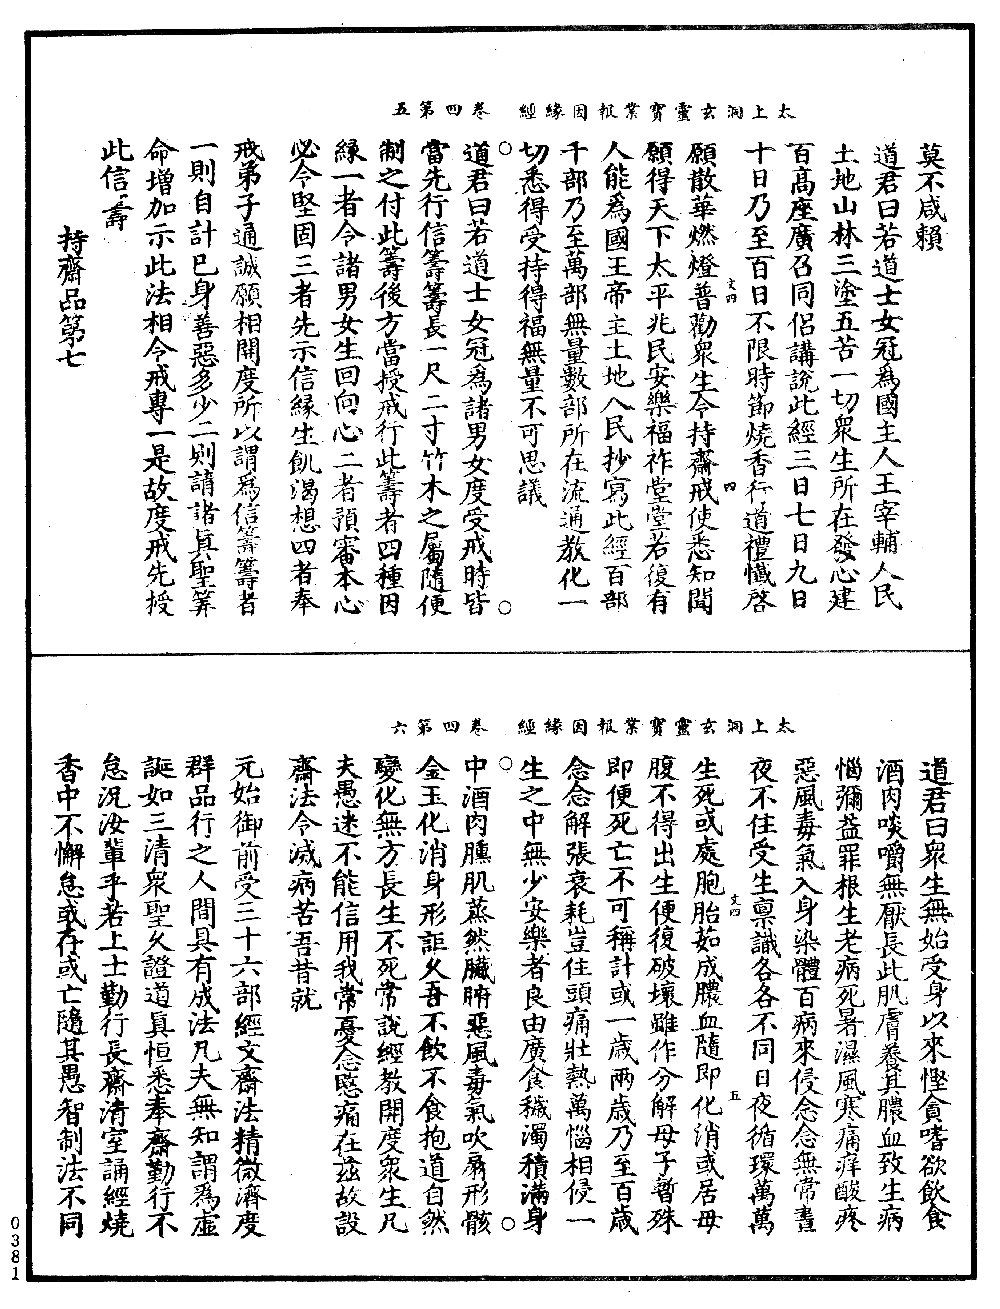 太上洞玄靈寶業報因緣經　卷四第五
莫不咸賴
道君曰若道士女冠為國主人王宰輔人民
土地山林三塗五苦一切衆生所在發心建
百高座廣召同侣講說此經三日七日九日
十日乃至百日不限時節燒香行道禮懺啓
願散華燃燈普勸衆生令持齋戒使悉知聞
文四
四
願得天下太平兆民安樂福祚堂堂若復有
人能為國王帝主土地人民抄寫此經百部
千部乃至萬部無量數部所在流通教化一
切悉得受持得福無量不可思議
道君曰若道士女冠為諸男女度受戒時皆
當先行信籌籌長一尺二寸竹木之屬隨便
制之付此籌後方當授戒行此籌者四種因
緣一者令諸男女生回向心二者預審本心
必令堅固三者先示信緣生飢渴想四者奉
戒弟子通誠願相開度所以謂為信籌籌者
一則自計已身善惡多少二則請諸真聖筭
命增加示此法相令戒專一是故度戒先授
此信籌
持齋品第七
太上洞玄靈寶業報因緣經　卷四第六
道君曰衆生無始受身以來慳貪嗜欲飲食
酒肉啖嚼無厭長此肌膚養其膿血致生病
惱彌益罪根生老病死暑濕風寒痛痒酸疼
惡風毒氣入身染體百病來侵念念無常晝
夜不住受生禀識各各不同日夜循環萬萬
生死或處胞胎茹成膿血隨即化消或居母
文四
五
腹不得出生便復破壞雖作分解母子暫殊
即便死亡不可稱計或一歲兩歲乃至百歲
念念解張衰耗豈住頭痛壯熱萬惱相侵一
生之中無少安樂者良由廣食穢濁積滿身
中酒肉臐肌蒸然臟腑惡風毒氣吹扇形骸
金玉化消身形詎久吾不飲不食抱道自然
變化無方長生不死常說經教開度衆生凡
夫愚迷不能信用我常憂念愍痛在兹故設
齋法令滅病苦吾昔就
元始御前受三十六部經文齋法精微濟度
群品行之人間具有成法凡夫無知謂為虛
誕如三清衆聖久證道真恒悉奉齋勤行不
怠況汝輩乎若上士勤行長齋清室誦經燒
香中不懈怠或存或亡隨其愚智制法不同
0381